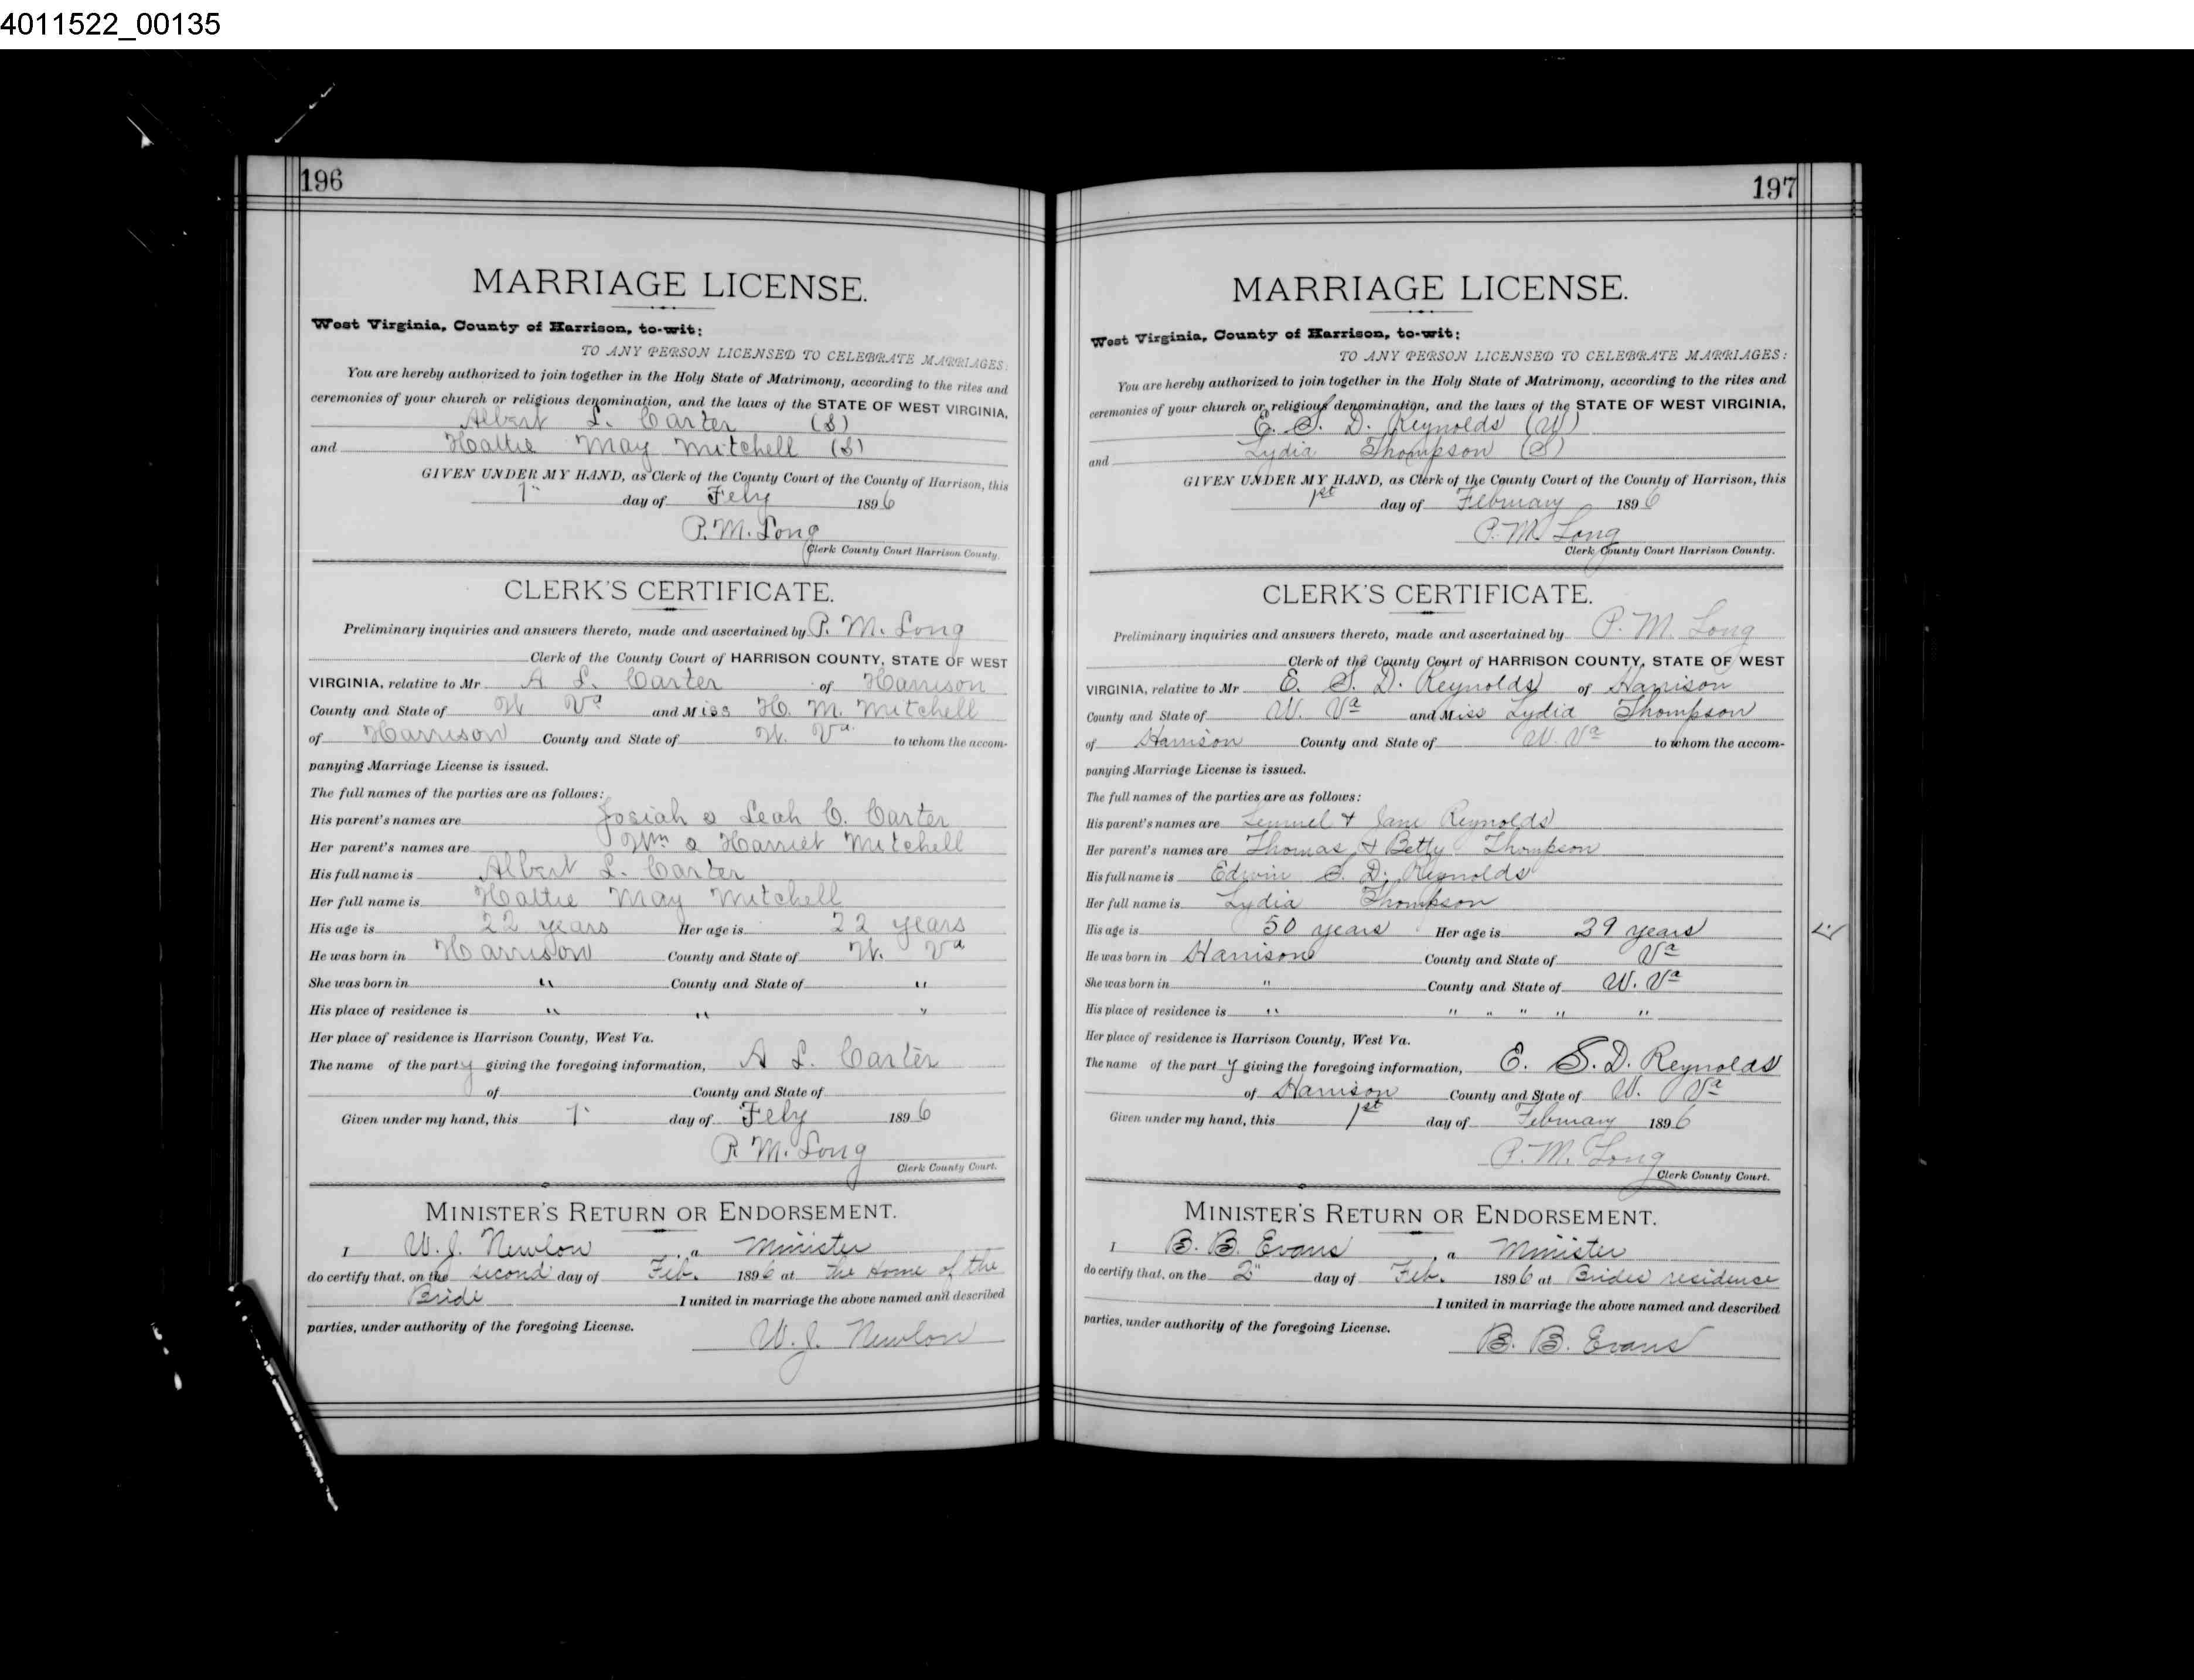 4011522_00135
196
MARRIAGE LICENSE.
West Virginia, County of Harrison, to-wit:
TO ANY PERSON LICENSED TO CELEBRATE MARRIAGES:
You are hereby authorized to join together in the Holy State of Matrimony, according to the rites and
ceremonies of your church or religious denomination, and the laws of the STATE OF WEST VIRGINIA,
Albert L. Carter (S)
and Hattie May Mitchell (S)
GIVEN UNDER MY HAND, as Clerk of the County Court of the County of Harrison, this
1" day of Feby 1896
P. M. Long
Clerk County Court Harrison County.
CLERK'S CERTIFICATE.
Preliminary inquiries and answers thereto, made and ascertained by P. M. Long
Clerk of the County Court of HARRISON COUNTY, STATE OF WEST
VIRGINIA, relative to Mr A L. Carter of Harrison
County and State of W Va and Miss H. M. Mitchell
of Harrison County and State of W. Va. to whom the accom-
panying Marriage License is issued.
The full names of the parties are as follows:
His parent's names are Josiah & Leah C. Carter
Her parent's names are Wm & Harriet Mitchell
His full name is Albert L. Carter
Her full name is Hattie May Mitchell
His age is 22 years Her age is 22 years
He was born in Harrison County and State of W. Va
She was born in " County and State of "
His place of residence is " " "
Her place of residence is Harrison County, West Va.
The name of the party giving the foregoing information, A L. Carter
of County and State of
Given under my hand, this 1" day of Feby 1896
P. M. Long
Clerk County Court.
MINISTER'S RETURN OR ENDORSEMENT.
I W. J. Newlon, a Minister
do certify that, on the second day of Feb. 1896 at the home of the
Bride I united in marriage the above named and described
parties, under authority of the foregoing License.
W. J. Newlon
197
MARRIAGE LICENSE.
West Virginia, County of Harrison, to-wit:
TO ANY PERSON LICENSED TO CELEBRATE MARRIAGES:
You are hereby authorized to join together in the Holy State of Matrimony, according to the rites and
ceremonies of your church or religious denomination, and the laws of the STATE OF WEST VIRGINIA,
E. S. D. Reynolds (W)
and Lydia Thompson (S)
GIVEN UNDER MY HAND, as Clerk of the County Court of the County of Harrison, this
1st day of February 1896
P. M. Long
Clerk County Court Harrison County.
CLERK'S CERTIFICATE.
Preliminary inquiries and answers thereto, made and ascertained by P. M. Long
Clerk of the County Court of HARRISON COUNTY, STATE OF WEST
VIRGINIA, relative to Mr E. S. D. Reynolds of Harrison
County and State of W. Va and Miss Lydia Thompson
of Harrison County and State of W. Va to whom the accom-
panying Marriage License is issued.
The full names of the parties are as follows:
His parent's names are Lemuel & Jane Reynolds
Her parent's names are Thomas & Betty Thompson
His full name is Edwin S. D. Reynolds
Her full name is Lydia Thompson
His age is 50 years Her age is 39 years
He was born in Harrison County and State of Va
She was born in " County and State of W. Va
His place of residence is " " " " " "
Her place of residence is Harrison County, West Va.
The name of the party giving the foregoing information, E. S. D. Reynolds
of Harrison County and State of W. Va
Given under my hand, this 1st day of February 1896
P. M. Long
Clerk County Court.
MINISTER'S RETURN OR ENDORSEMENT.
I B. B. Evans, a Minister
do certify that, on the 2" day of Feb. 1896 at Brides residence
I united in marriage the above named and described
parties, under authority of the foregoing License.
B. B. Evans